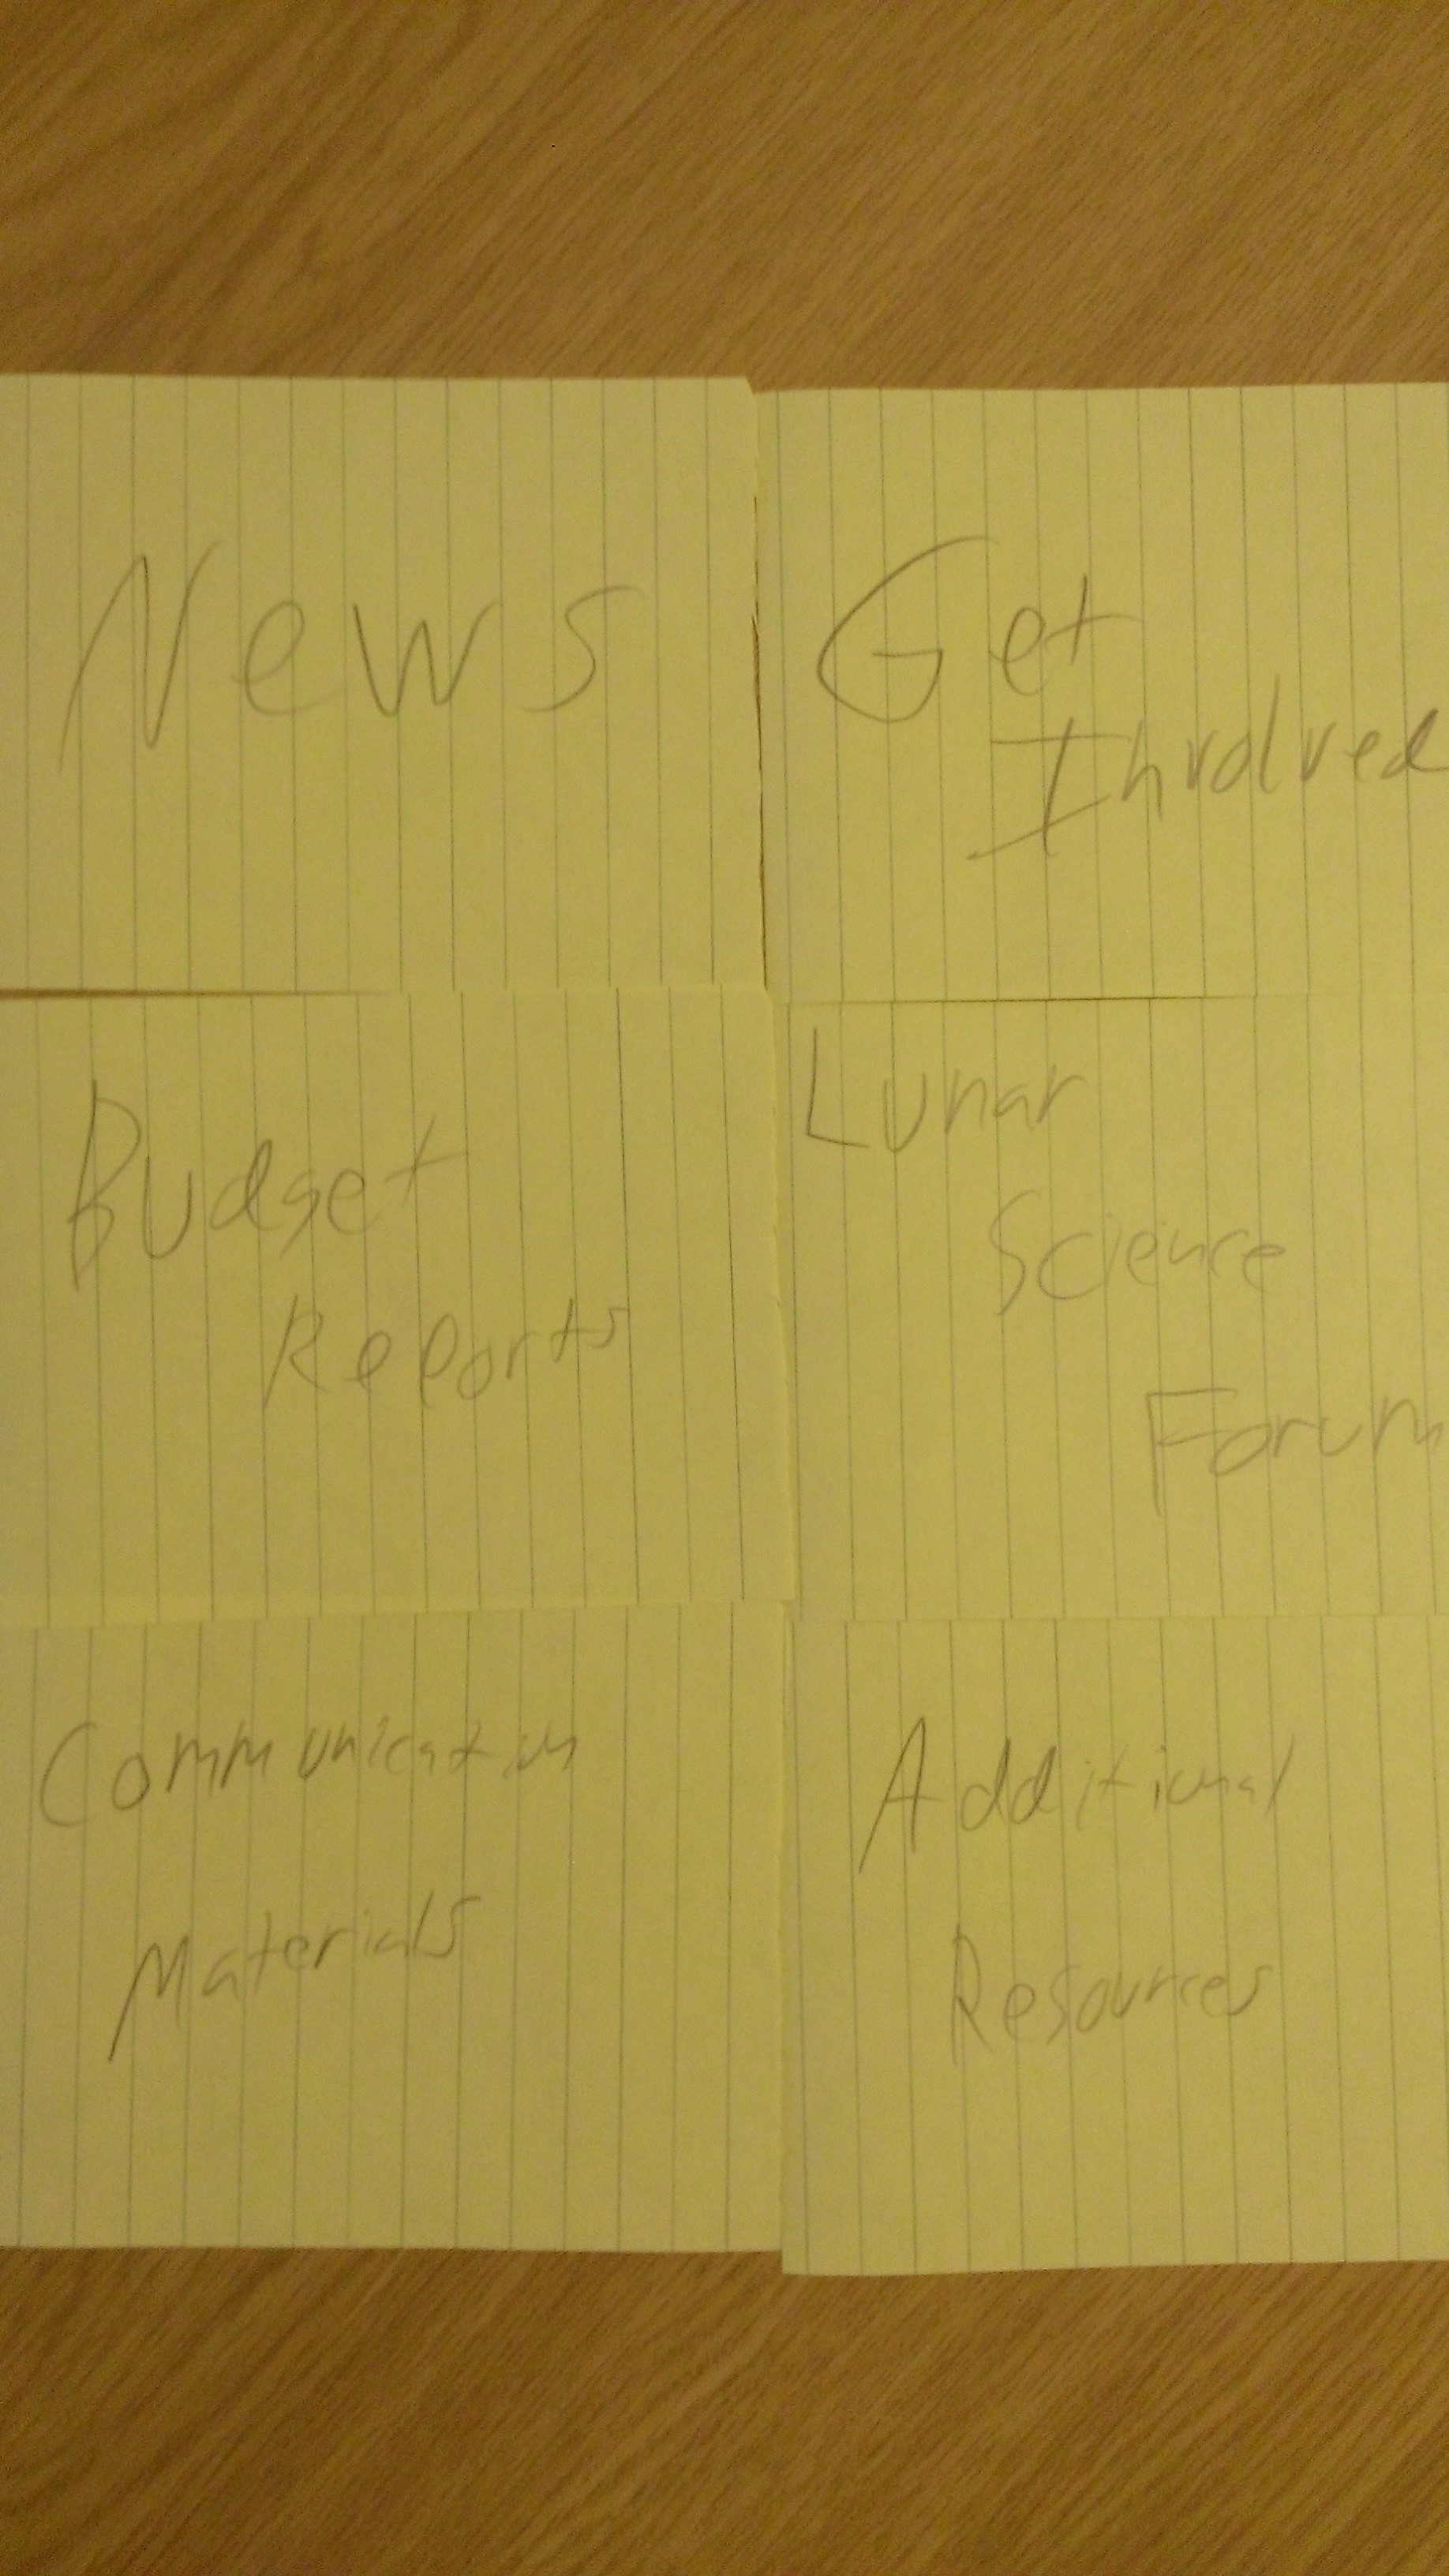 News
Get
Involved
Budget
Reports
Lunar
Science
Forum
Communication
Materials
Additional
Resources